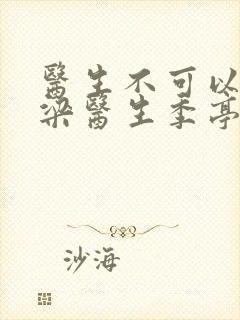 醫生不可以
梁醫生季亭
沙海